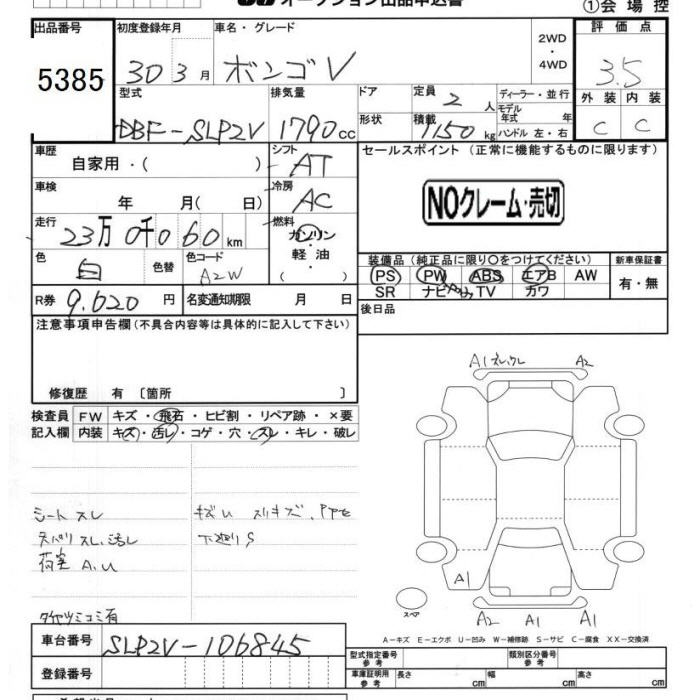 オークション出品申込書
①会場控
出品番号 初度登録年月 車名・グレード 2WD・4WD 評価点
5385 30 3月 ボンゴV 3.5
型式 排気量 ドア 定員 2人 ディーラー・並行 外装 内装
DBF-SLP2V 1790cc 形状 積載 1150kg モデル年式 年 ハンドル 左・右 C C
車歴 自家用・( ) シフト AT セールスポイント (正常に機能するものに限ります)
車検 年 月( 日) 冷房 AC
NOクレーム・売切
走行 23万0千060km 燃料 ガソリン・軽油・( )
色 白 色替 色コード A2W
装備品 (純正品に限り○をつけてください) 新車保証書
PS PW ABS エアB AW 有・無
SR ナビ TV カワ
R券 9.620円 名変通知期限 月 日 後日品
注意事項申告欄 (不具合内容等は具体的に記入して下さい)
修復歴 有 〔箇所 〕
検査員 FW キズ・飛石・ヒビ割・リペア跡・×要
記入欄 内装 キズ・汚レ・コゲ・穴・スレ・キレ・破レ
A1 スレ,ワレ A2
シートスレ キズU スリキズ、
スレ、汚レ 下廻りS
荷室 A.U
A1
スペア
A2 A1 A1
タイヤツミコミ有
A-キズ E-エクボ U-凹み W-補修跡 S-サビ C-腐食 XX-交換済
車台番号 SLP2V-106845
型式指定番号 参考 類別区分番号 参考
登録番号 車庫証明用 参考 長さ cm 幅 cm 高さ cm